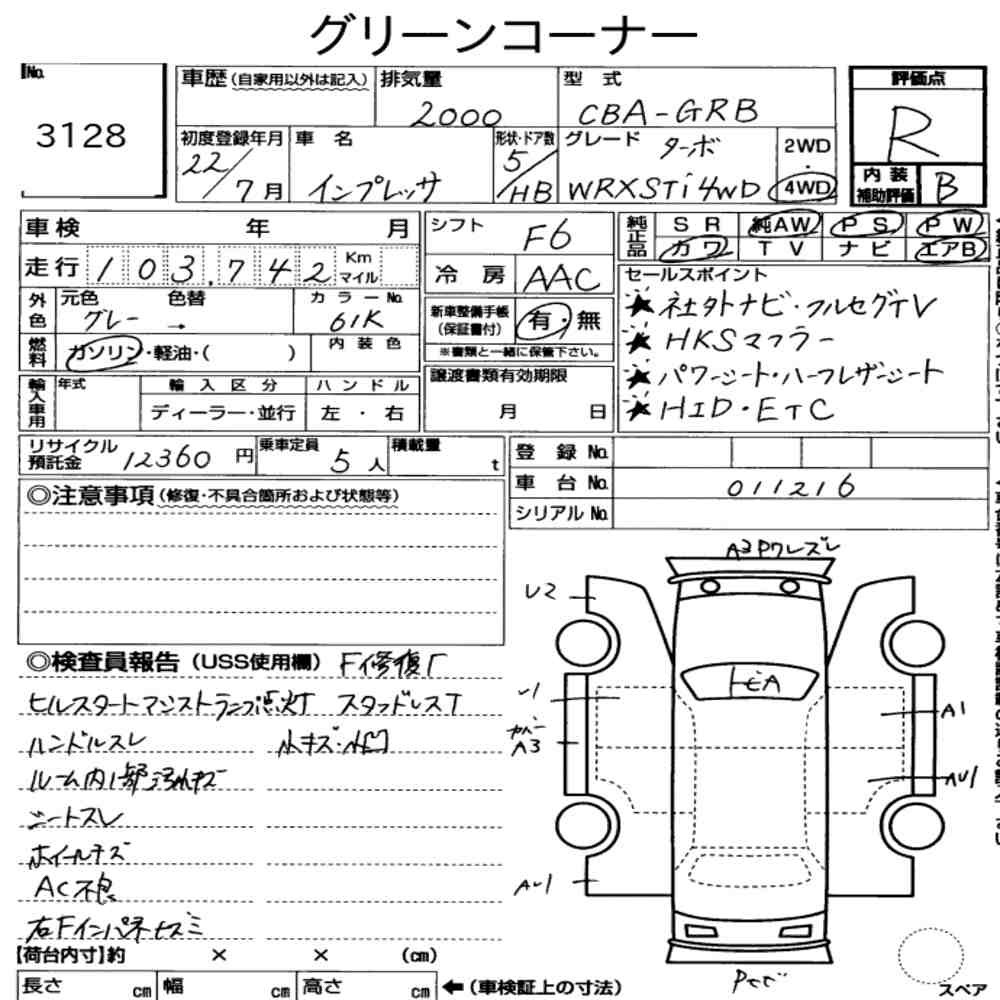 グリーンコーナー
No. 3128
車歴（自家用以外は記入） 排気量 2000 型式 CBA-GRB
初度登録年月 22/7月 車名 インプレッサ 形状・ドア数 5/HB グレード ターボ WRXSTi4WD 2WD・4WD
評価点 R
内装補助評価 B
車検 年 月
走行 103,742 Km マイル
外色 元色 グレー → 色替 カラーNo. 61K
燃料 ガソリン・軽油・( ) 内装色
輸入車用 年式 輸入区分 ディーラー・並行 ハンドル 左・右
シフト F6
冷房 AAC
新車整備手帳（保証書付） 有・無
※書類と一緒に保管下さい。
譲渡書類有効期限 月 日
純正品 SR 純AW PS PW
カワ TV ナビ エアB
セールスポイント
★社外ナビ・フルセグTV
★HKSマフラー
★パワーシート・ハーフレザーシート
★HID・ETC
リサイクル預託金 12360円 乗車定員 5人 積載量 t
登録No.
車台No. 011216
シリアルNo.
◎注意事項（修復・不具合箇所および状態等）
◎検査員報告（USS使用欄） F修復
スタッドレスT
ハンドルスレ
シートスレ
ホイールキズ
AC不良
【荷台内寸】約 × × (cm)
長さ cm 幅 cm 高さ cm ←（車検証上の寸法）
U2
A3
A1
スペア